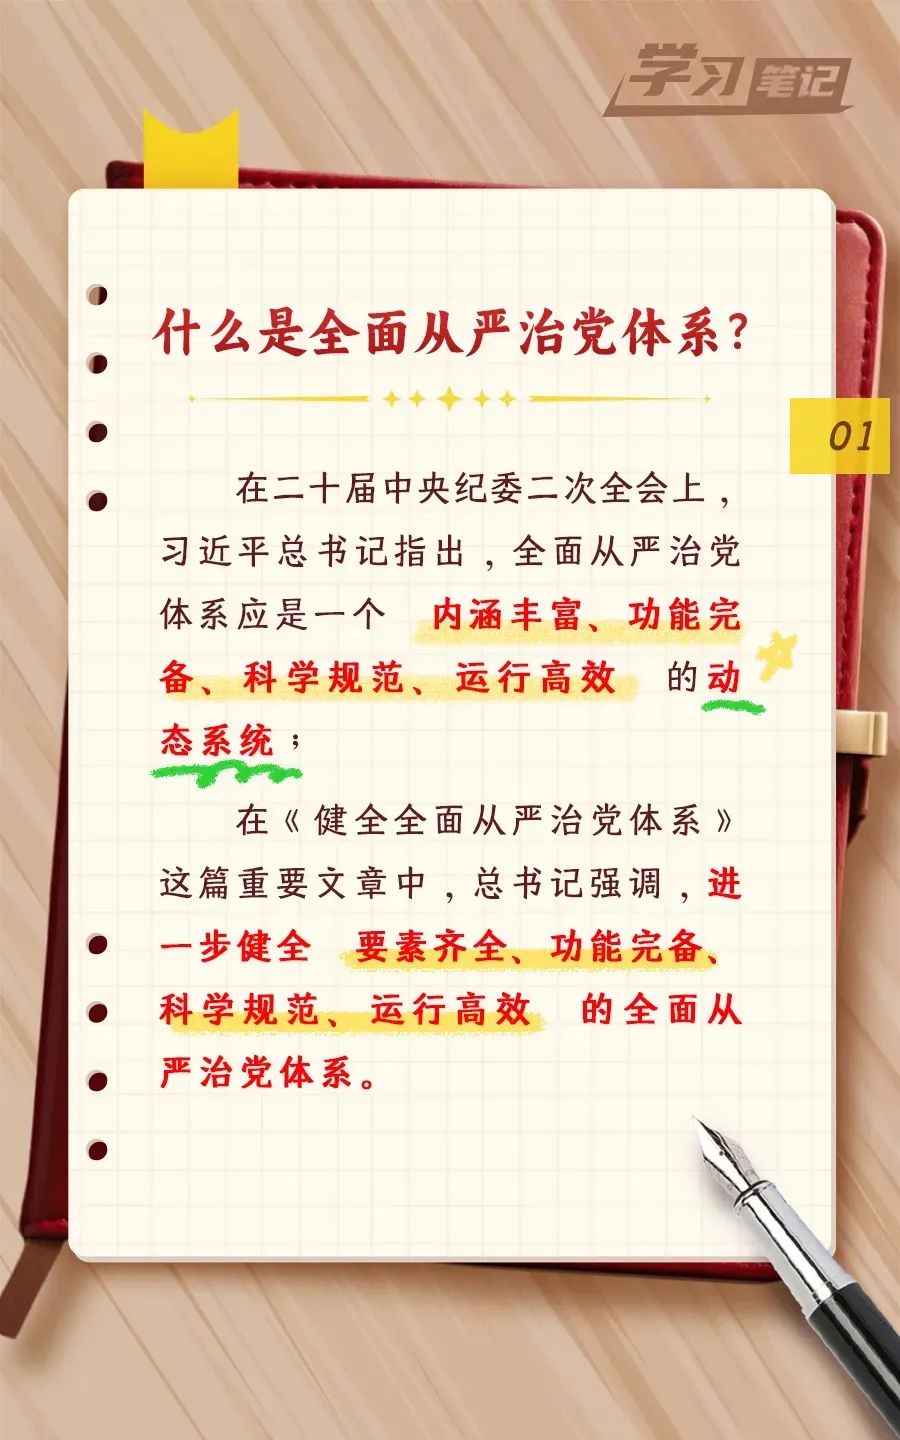 学习笔记
什么是全面从严治党体系？
01
在二十届中央纪委二次全会上，
习近平总书记指出，全面从严治党
体系应是一个 内涵丰富、功能完
备、科学规范、运行高效 的动
态系统；
在《健全全面从严治党体系》
这篇重要文章中，总书记强调，进
一步健全 要素齐全、功能完备、
科学规范、运行高效 的全面从
严治党体系。